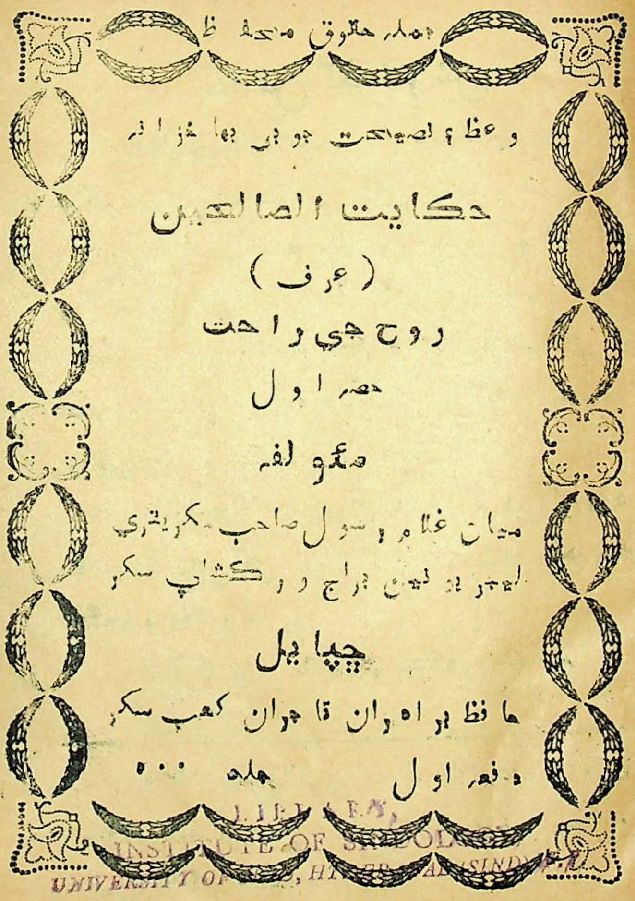 جملہ حقوق محفوظ
وعظ ۽ نصيحت جو بي بها خزانہ
حڪايت الصالحين
( عرف )
روح جي راحت
حصہ اول
مئولفہ
ميان غلام رسول صاحب سکر
براج ورڪشاپ سکر
ڇپايل
حافظ برادران تاجران کتب سکر
دفعہ اول جلد ٥٠٠
LIBRARY,
INSTITUTE OF SINDOLOGY
UNIVERSITY OF SIND, HYDERABAD (SIND)